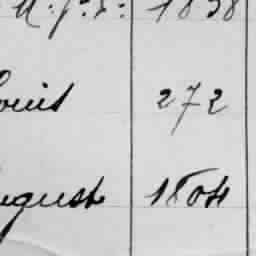 1838
ouis 272
ugust 1804